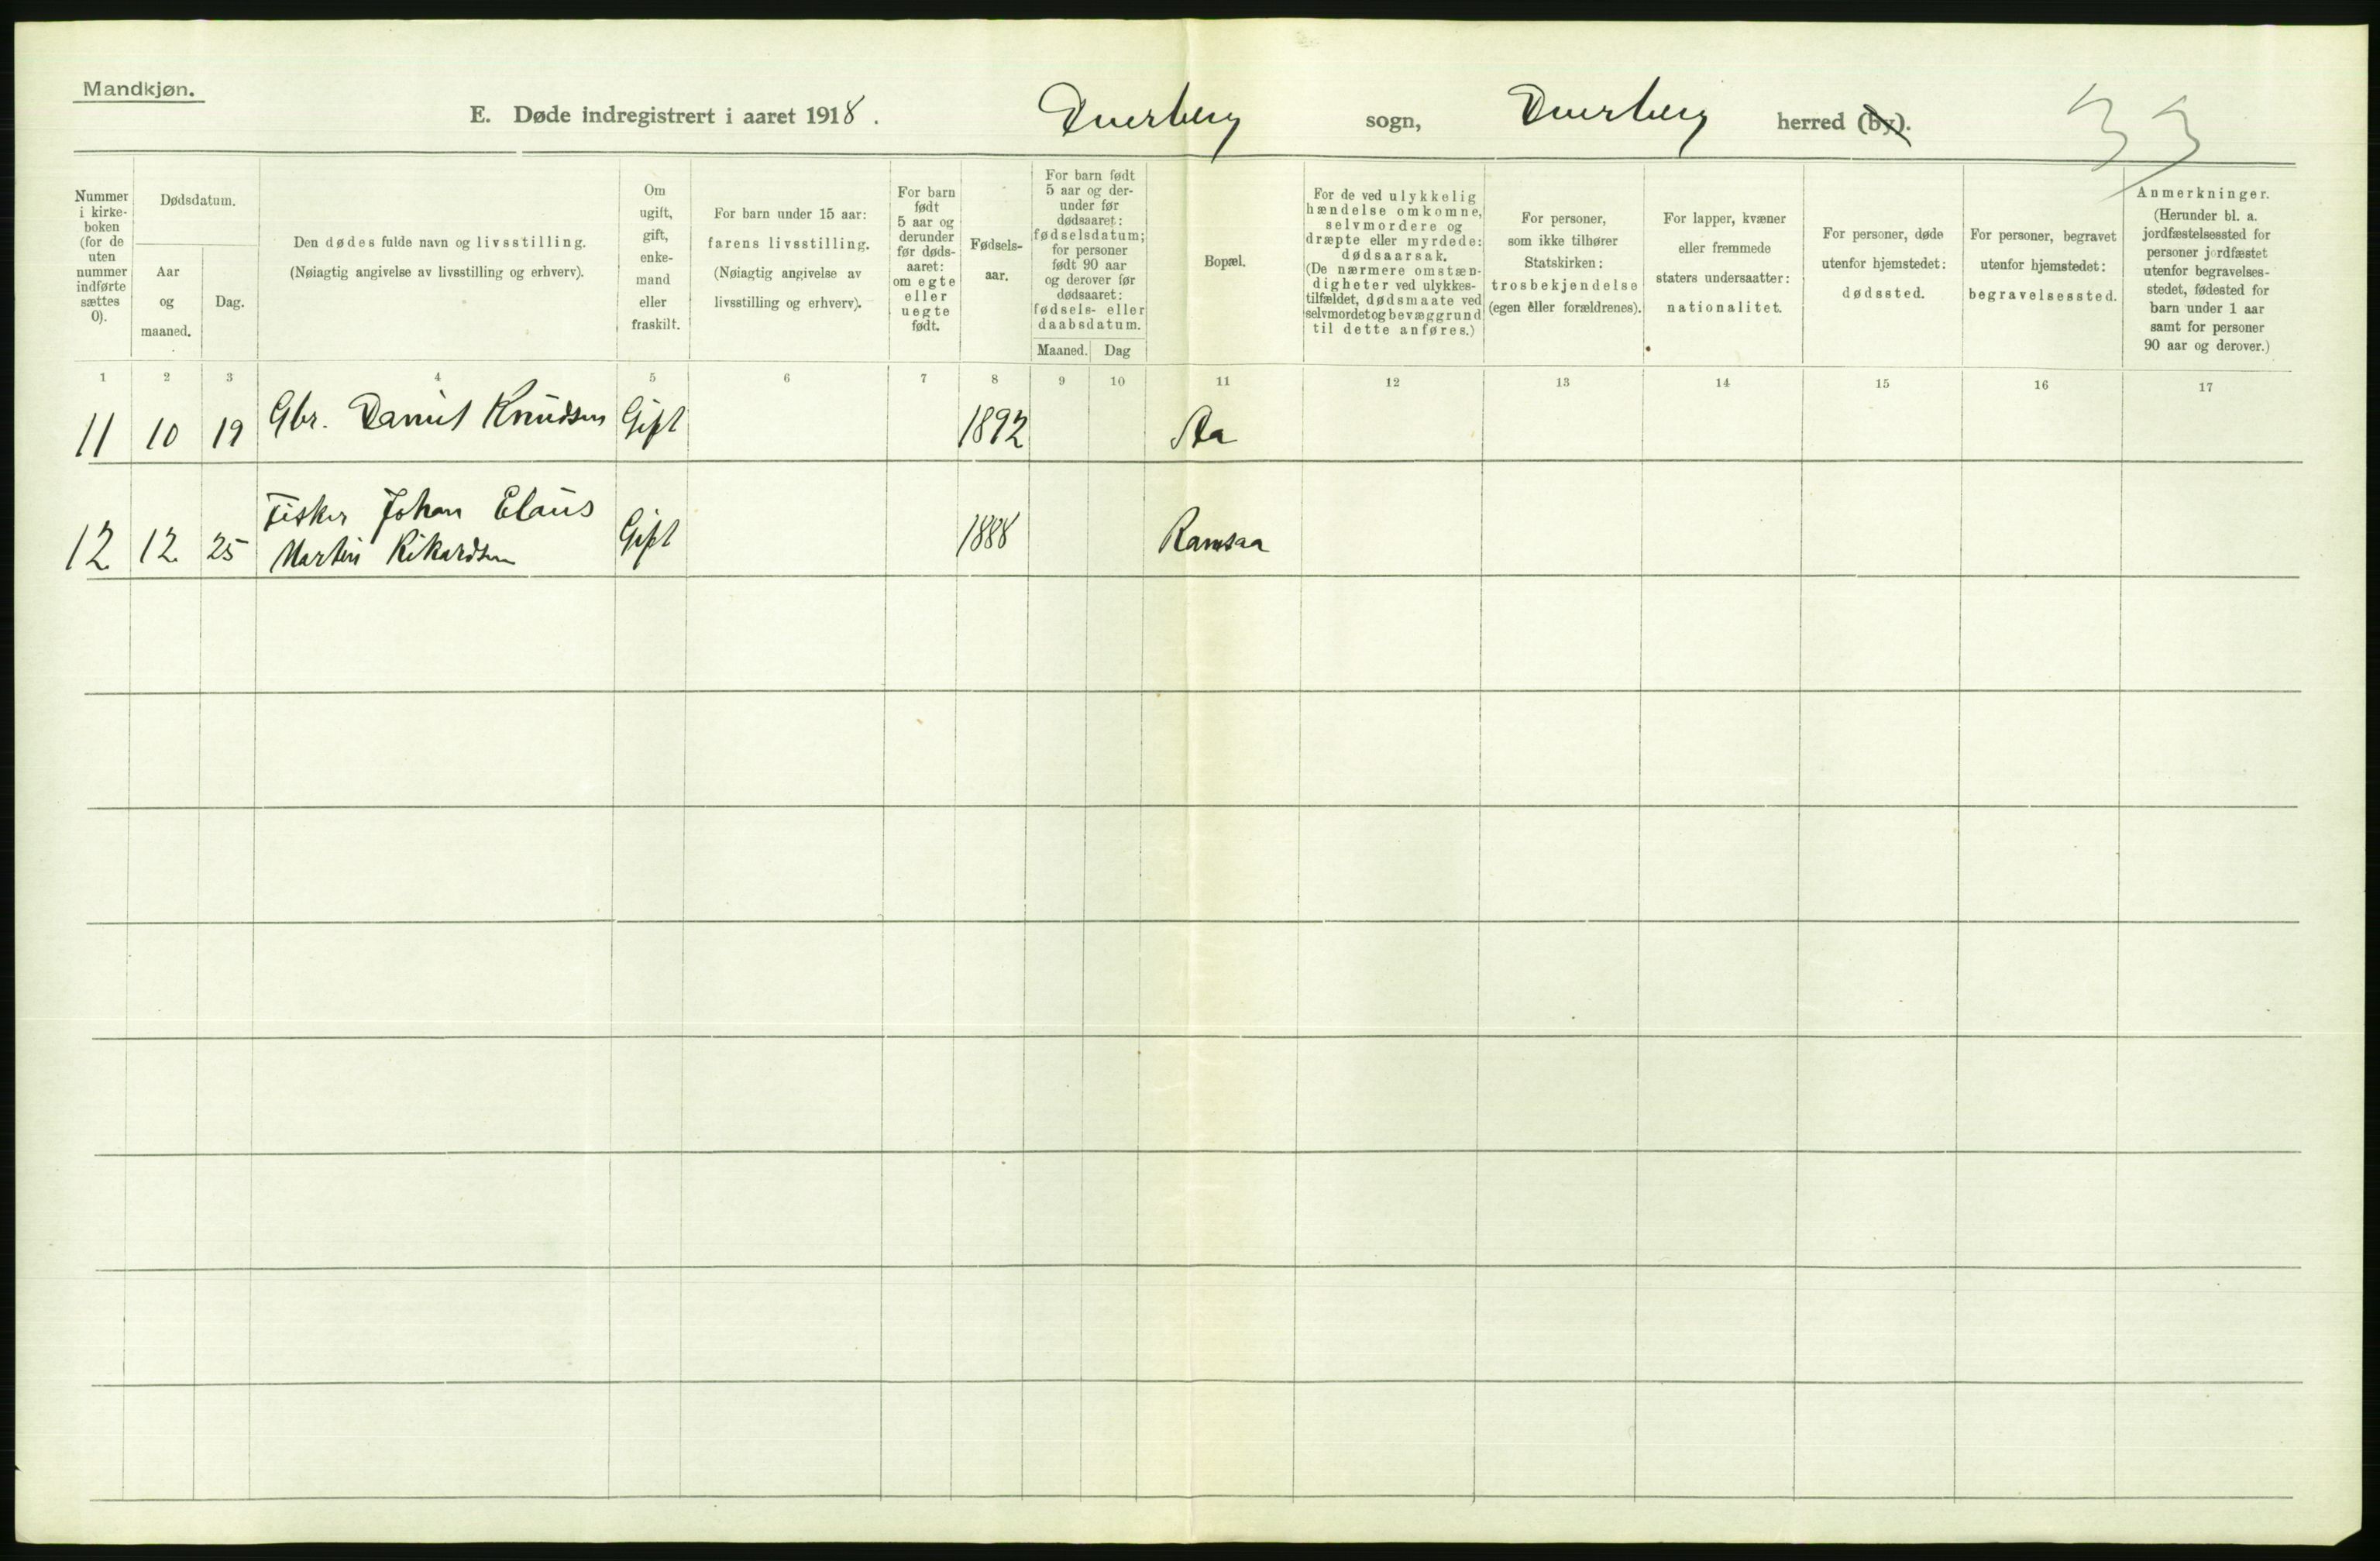 Mandkjøn.
E. Døde indregistrert i aaret 1918. Dverberg sogn, Dverberg herred (by).
33
Nummer i kirke-boken (for de uten nummer indførte sættes 0).
Dødsdatum.
Aar og maaned.
Dag.
Den dødes fulde navn og livsstilling.
(Nøiagtig angivelse av livsstilling og erhverv).
Om ugift, gift, enke-mand eller fraskilt.
For barn under 15 aar:
farens livsstilling.
(Nøiagtig angivelse av
livsstilling og erhverv).
For barn født 5 aar og derunder før døds-aaret: om egte eller uegte født.
Fødsels-aar.
For barn født
5 aar og der-
under før
dødsaaret:
fødselsdatum;
for personer
født 90 aar
og derover før
dødsaaret:
fødsels- eller
daabsdatum.
Maaned. Dag
Bopæl.
For de ved ulykkelig
hændelse omkomne,
selvmordere og
dræpte eller myrdede:
dødsaarsak.
(De nærmere omstæn-
digheter ved ulykkes-
tilfældet, dødsmaate ved
selvmordet og bevæggrund
til dette anføres.)
For personer,
som ikke tilhører
Statskirken:
trosbekjendelse
(egen eller forældrenes).
For lapper, kvæner
eller fremmede
staters undersaatter:
nationalitet.
For personer, døde
utenfor hjemstedet:
dødssted.
For personer, begravet
utenfor hjemstedet:
begravelsessted.
Anmerkninger.
(Herunder bl. a.
jordfæstelsessted for
personer jordfæstet
utenfor begravelses-
stedet, fødested for
barn under 1 aar
samt for personer
90 aar og derover.)
1 2 3 4 5 6 7 8 9 10 11 12 13 14 15 16 17
11 10 19 Gbr. Daniel Knudsen Gift 1892 Aa
Fisker Johan Elaus
12 12 25 Martin Rikardsen Gift 1888 Ramsaa